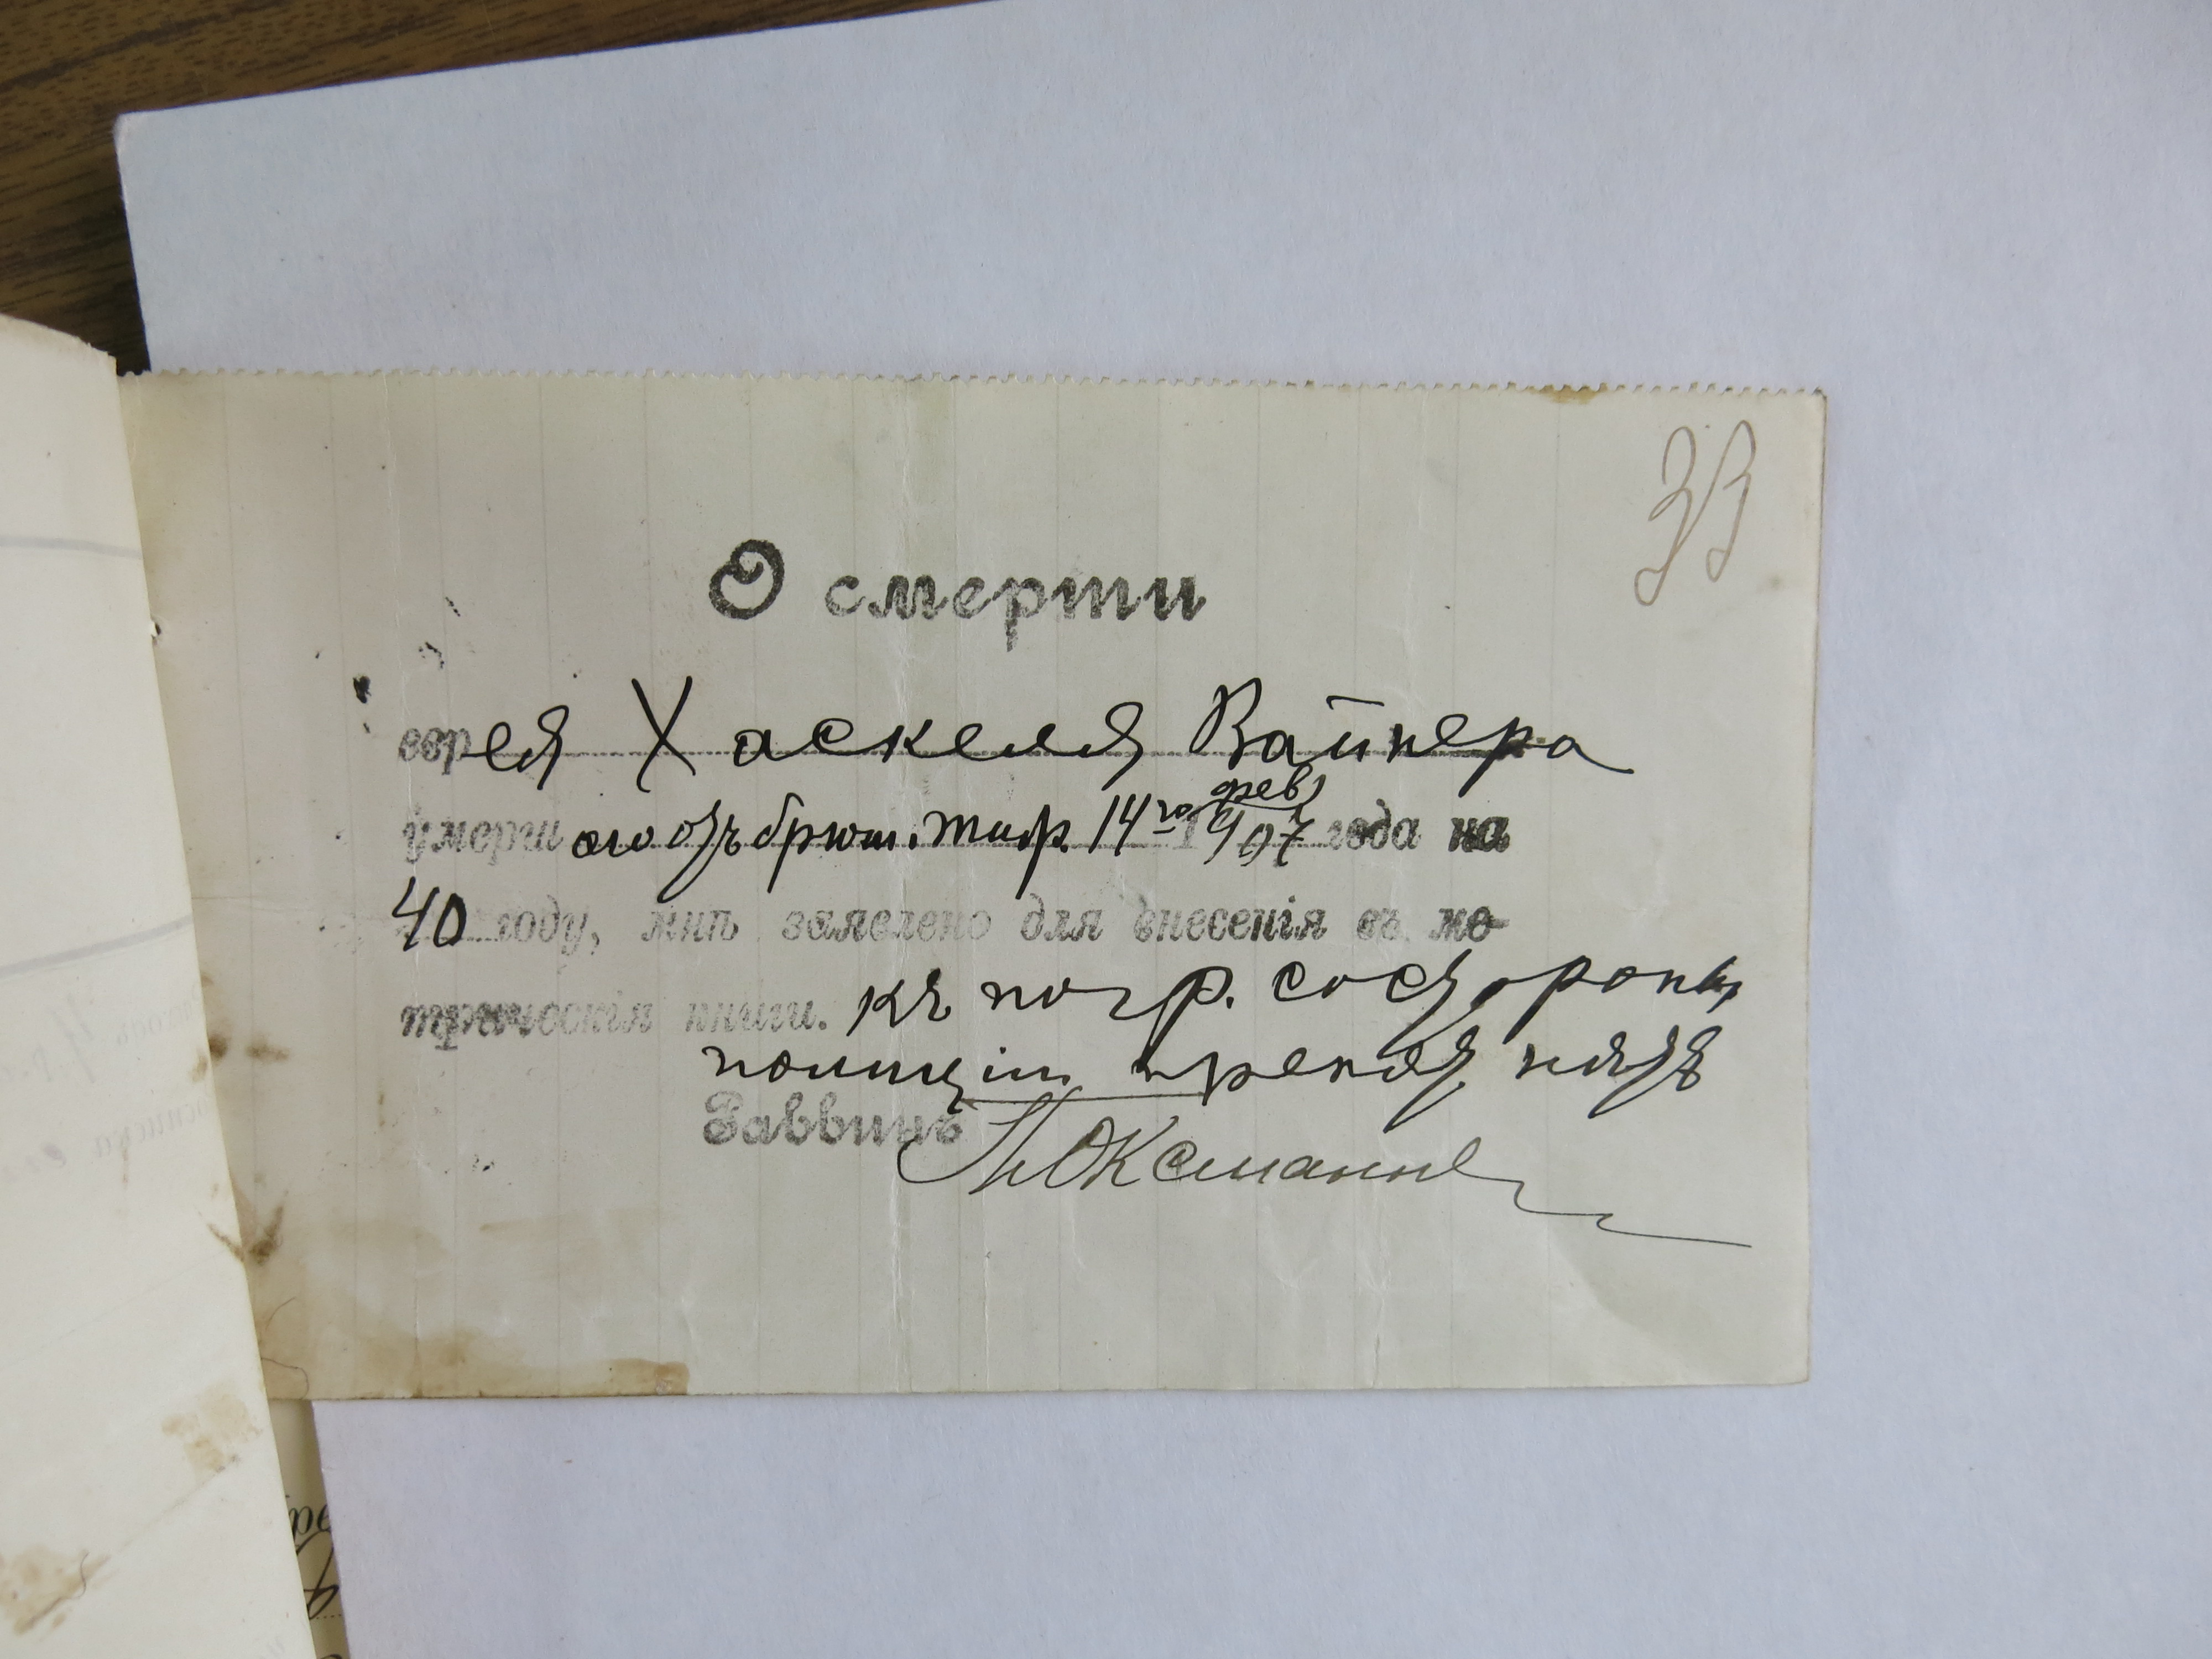 33
О смерти
еврея Хаскеля Вайнера
умершаго отъ брюш. тифр. 14го февр 1907 года на
40 году, мнѣ заявлено для внесенія въ ме-
трическія книги. Къ погр. со стороны
полиціи препят. нѣтъ
Раввинъ Юксманъ